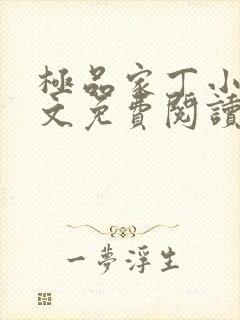 極品家丁小
文免費閱讀
一夢浮生